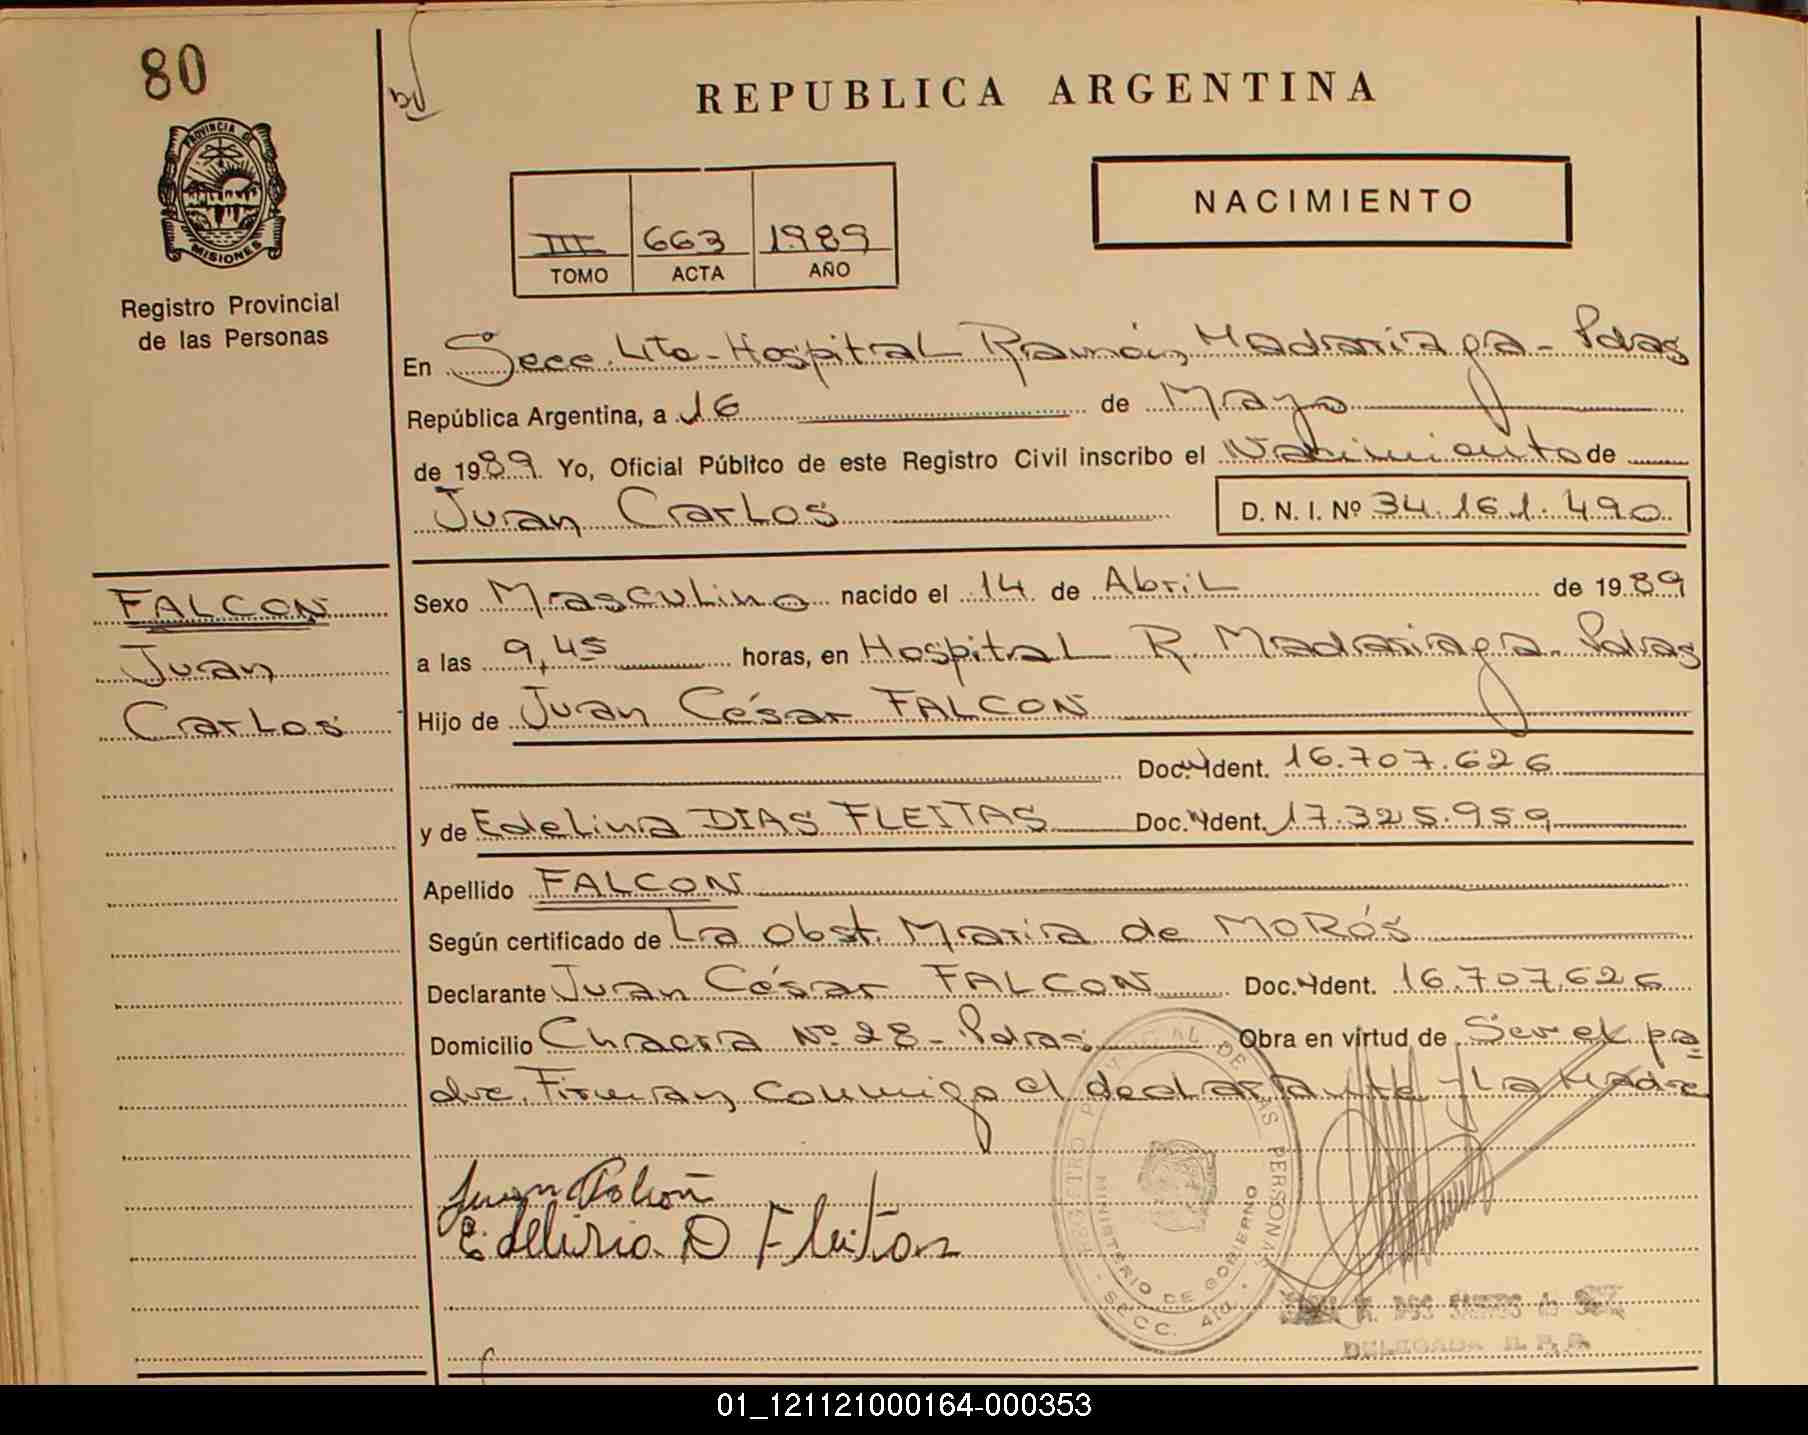 80
REPUBLICA ARGENTINA
NACIMIENTO
III 663 1989
TOMO ACTA AÑO
PROVINCIA DE
MISIONES
Registro Provincial
de las Personas
En Secc. 4ta - Hospital Ramón Madariaga - Pdas
República Argentina, a 16 de Mayo
de 1989. Yo, Oficial Público de este Registro Civil inscribo el Nacimiento de
Juan Carlos D. N. I. Nº 34.161.490
FALCON
Juan
Carlos
Sexo Masculino nacido el 14 de Abril de 1989
a las 9,45 horas, en Hospital R. Madariaga - Pdas
Hijo de Juan César FALCON
Doc. Ident. 16.707.626
y de Edelina DIAS FLEITAS Doc. Ident. 17.325.959
Apellido FALCON
Según certificado de La Obst. Maria de MORÓS
Declarante Juan César FALCON Doc. Ident. 16.707.626
Domicilio Chacra Nº 28 - Pdas Obra en virtud de Ser el pa
dre. Firman conmigo el declarante y La Madre
Juan Falcon
Edelina D Fleitas
REGISTRO PROVINCIAL DE LAS PERSONAS
MINISTERIO DE GOBIERNO
SECC. 4ta.
DOS SANTOS de
DELEGADA R. P. P.
01_121121000164-000353